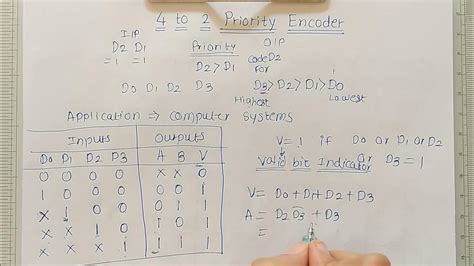 4 to 2 Priority Encoder
I/P
D2 D1
=1 =1
Priority
D2>D1
O/P
Code D2
For
D0 D1 D2 D3
D3>D2>D1>D0
Highest
Lowest
Application → Computer Systems
Inputs Outputs
D0 D1 D2 D3 A B V
0 0 0 0 X X 0
1 0 0 0 0 0 1
X 1 0 0 0 1 1
X X 1 0 1 0 1
X X X 1 1 1 1
V=1 if D0 or D1 or D2
or D3=1
Valid bit Indicator
V= D0+D1+D2+D3
A= D2D̅3̅ + D3
=